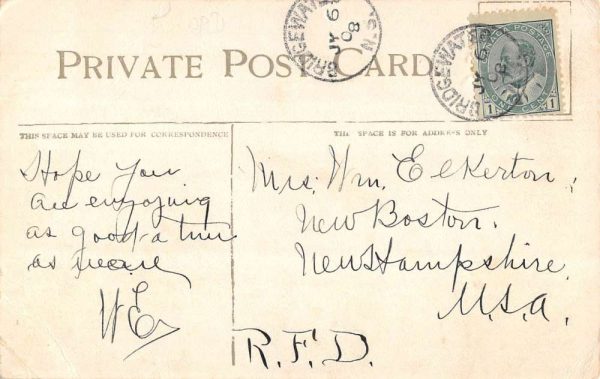 PRIVATE POST CARD
BRIDGEWATER
JY 6
08
N.S.
BRIDGEWATER
JY 6
08
CANADA POSTAGE
1 1
THIS SPACE MAY BE USED FOR CORRESPONDENCE
THE SPACE IS FOR ADDRESS ONLY
Hope you
are enjoying
as good a time
as we are
WE
Mrs. Wm. Elkerton,
New Boston.
New Hampshire
U.S.A.
R.F.D.